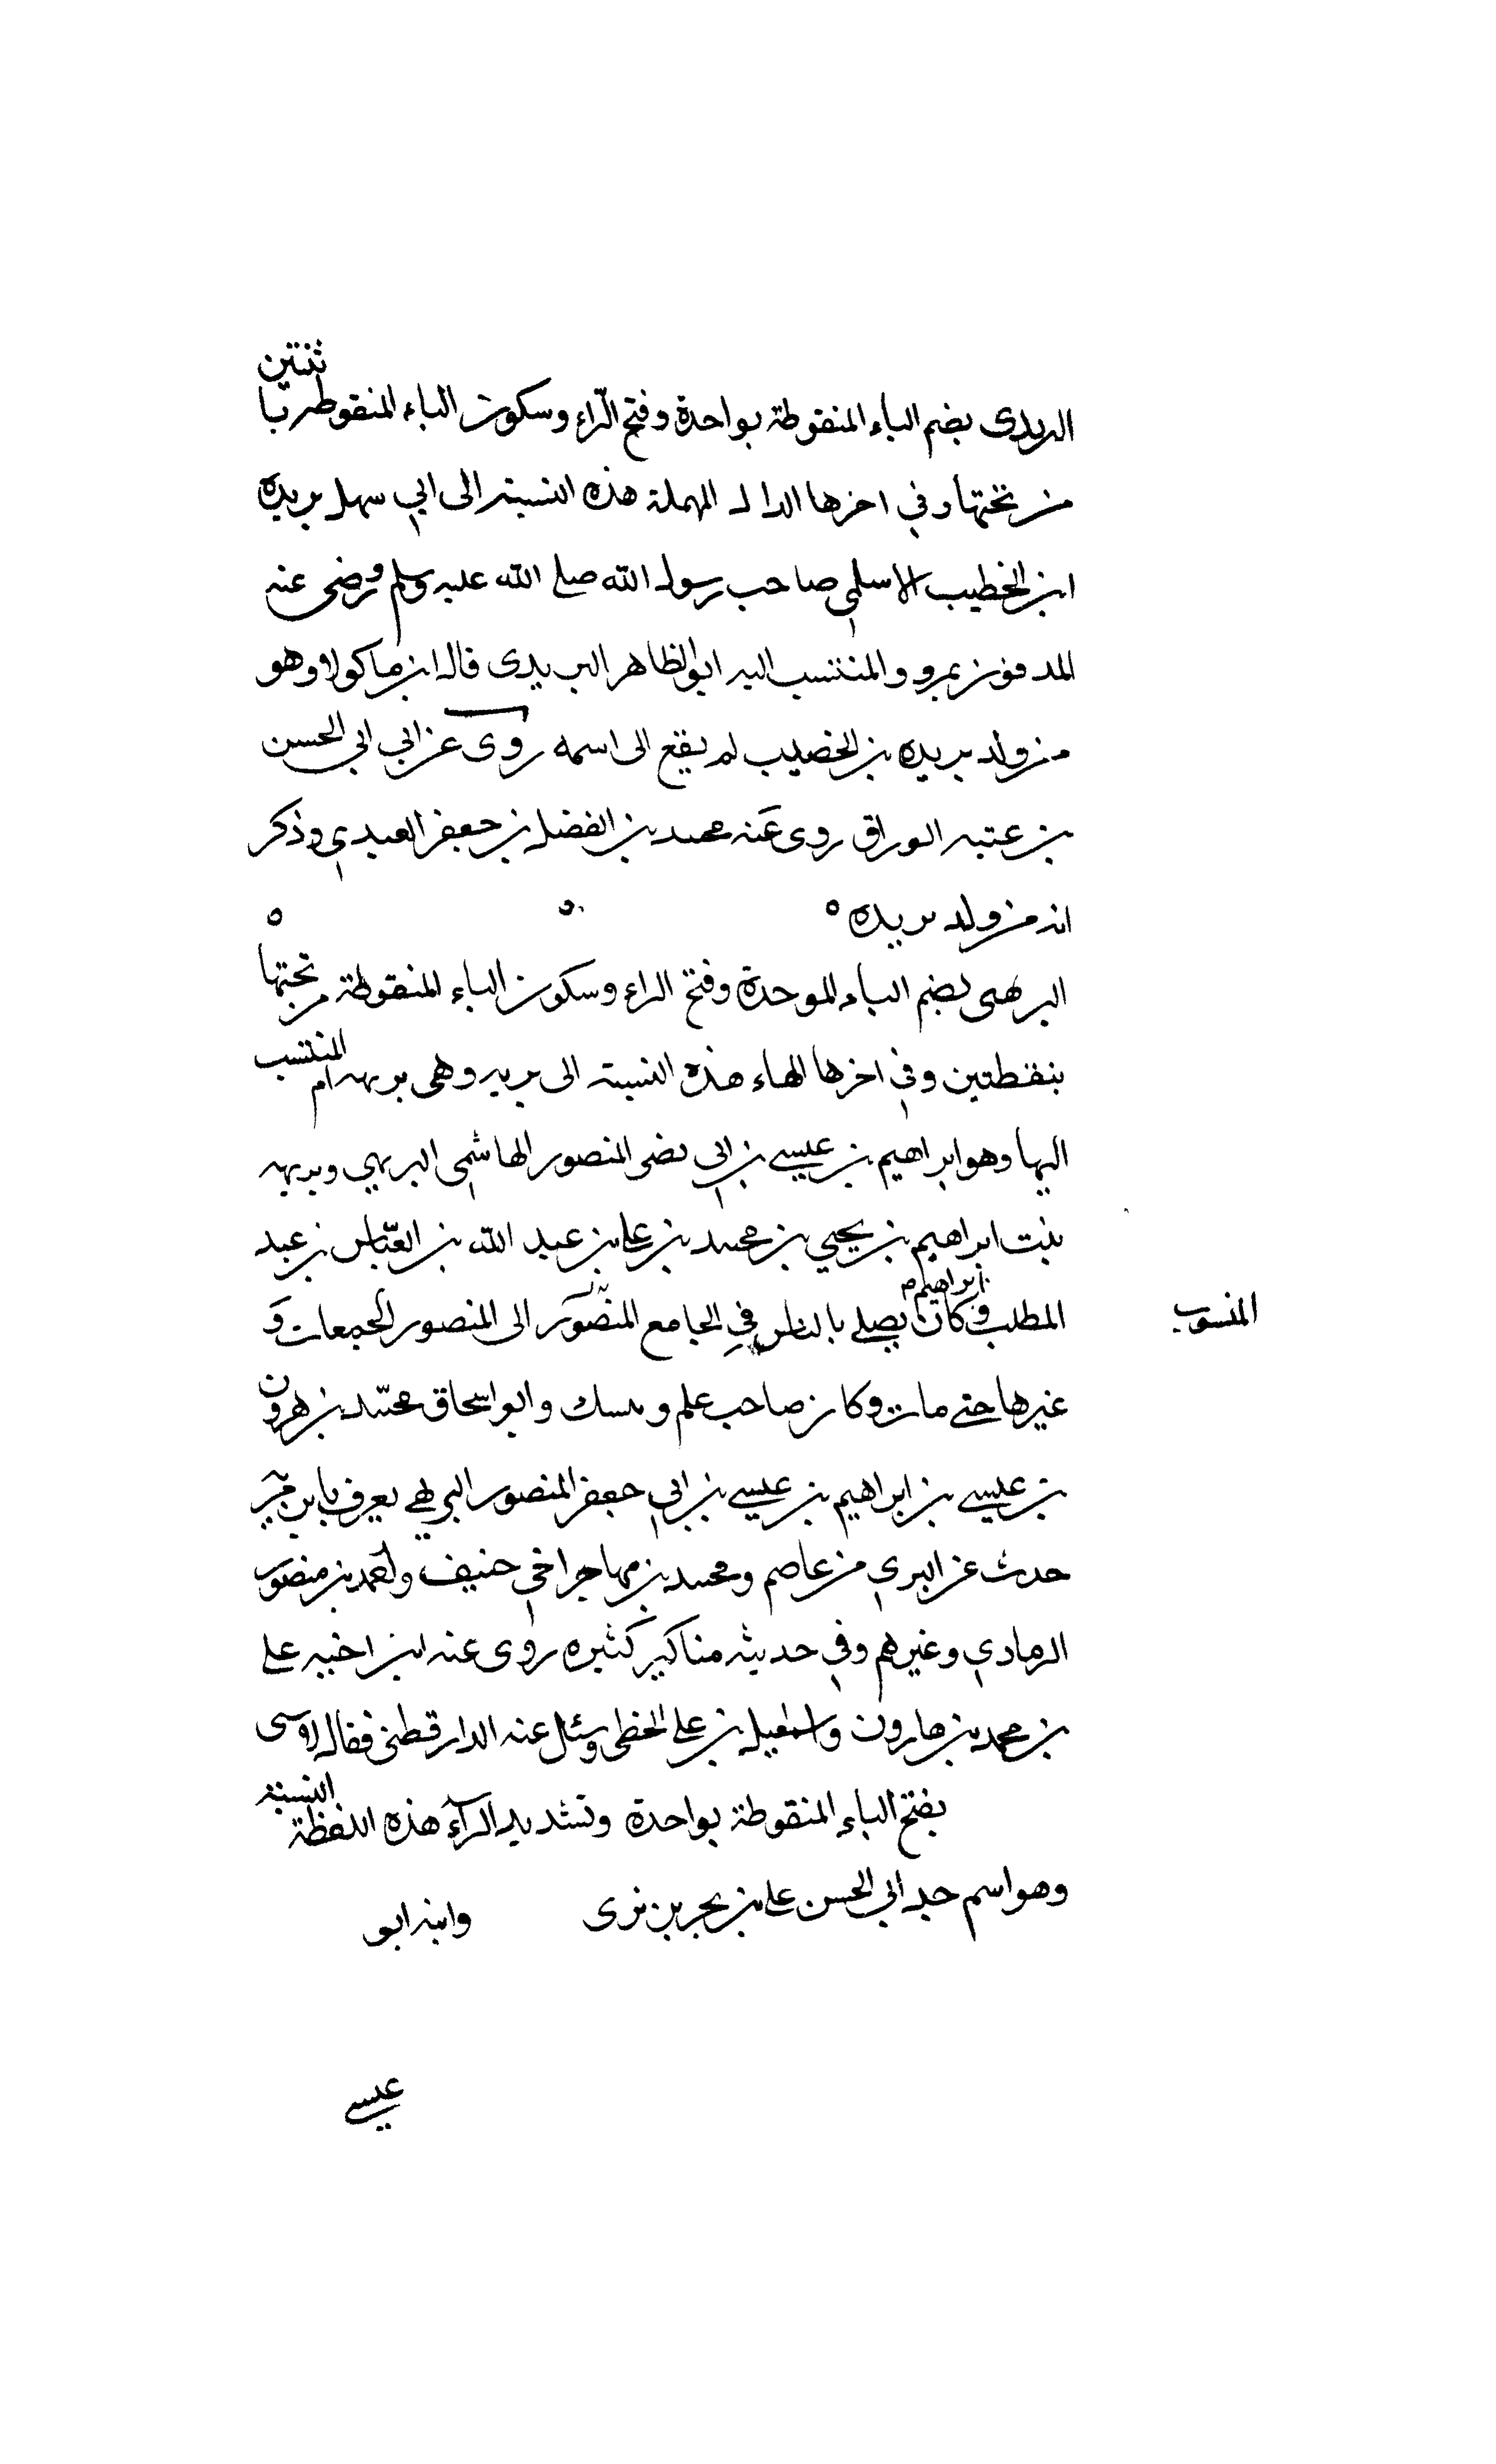 البريدي بضم الباء المنقوطة بواحدة وفتح الرّاء وسكون الياء المنقوطة باثنتين
من تحتها وفي اخرها الدال المهملة هذه النسبة الى ابي سهل بريده
ابن الخطيب الاسلمي صاحب رسول الله صلى الله عليه وسلم ورضى عنه
المدفون بمرو والمنتسب اليه ابو الظاهر البريدى قال ابن ماكولا وهو
من ولد بريده بن الخصيب لم يقع الى اسمه روى عن ابي ابي الحسن
بن عتبه الوراق روى عنه محمد بن الفضل بن جعفر العبدي وذكر
انه من ولد بريده ه ه ه
البرهى بضم الباء الموحدة وفتح الراء وسكون الياء المنقوطة من تحتها
بنقطتين وفي اخرها الهاء هذه النسبة الى بريه وهى بريهه ام المنتسب
اليها وهو ابراهيم بن عيسى بن ابي المنصور الهاشمى البريهي وبريهه
بنت ابراهيم بن يحيي بن محمد بن على بن عبد الله بن العبّاس بن عبد
المطلب وكان ابراهيم يصلى بالناس في الجامع المنصور الى المنصور الجمعات و
المنسوب
غيرها حتى مات وكان صاحب علم ونسك وابو اسحاق محمّد بن هرون
بن عيسى بن ابراهيم بن عيسى بن ابي جعفر المنصور يعرف بابن بريه
حدث عن السري من عاصم ومحمد بن مهاجر اخي حنيف واحمد بن منصور
الرمادي وغيرهم وفي حديثه مناكير كثيره روى عنه ابن اخيه على
بن محمد بن هارون واسمعيل بن على الخطى وسئل عنه الدارقطنى فقال
بفتح الباء المنقوطة بواحدة وتشديد الرآء هذه اللفظة النسبة
وهو اسم جد ابي الحسن على بن بحر بن برى وابنه ابو
عيسى